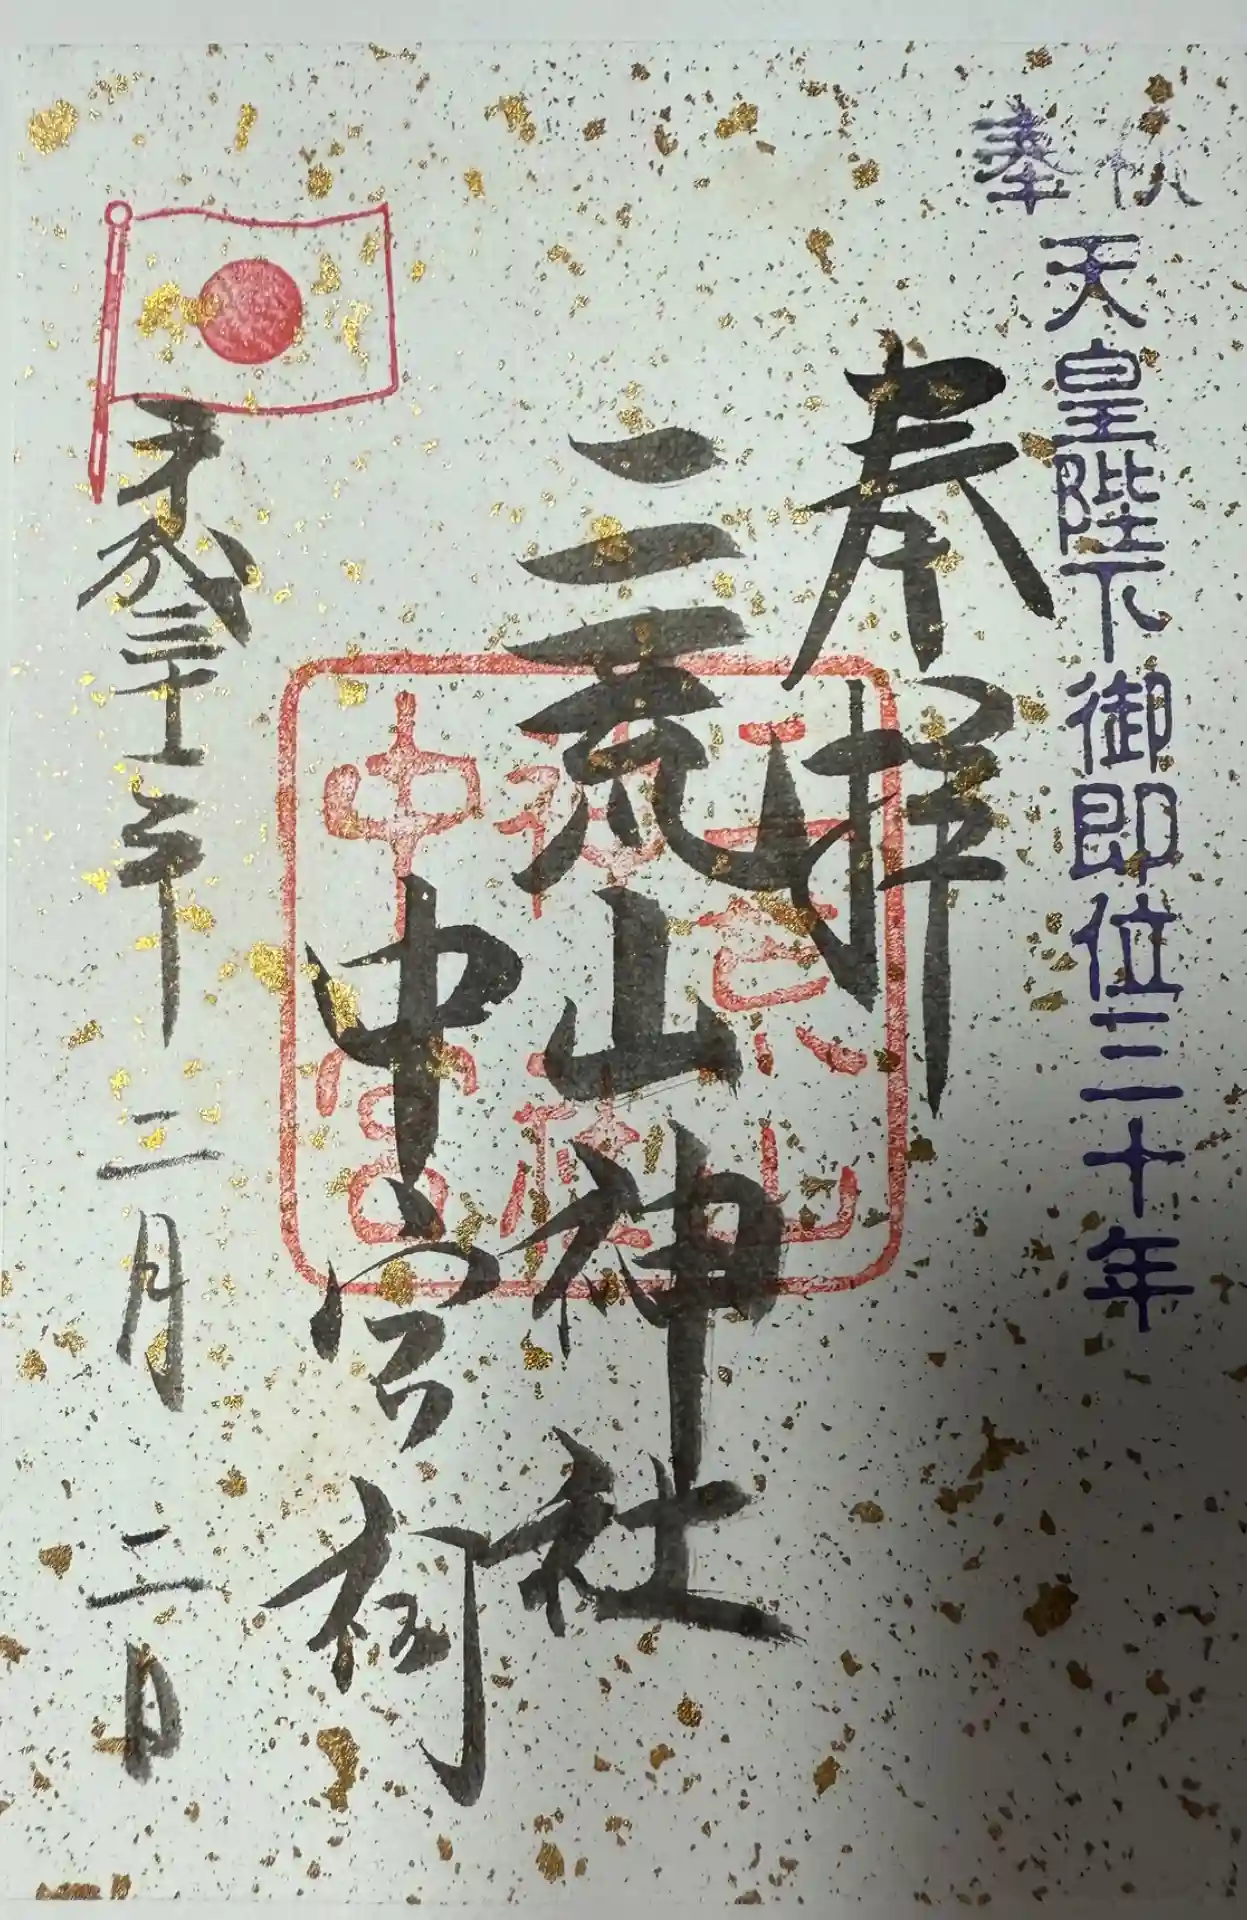 奉祝
天皇陛下御即位三十年
奉拝
二荒山神社
中宮祠
平成三十一年二月二日
二荒山
神社
中宮